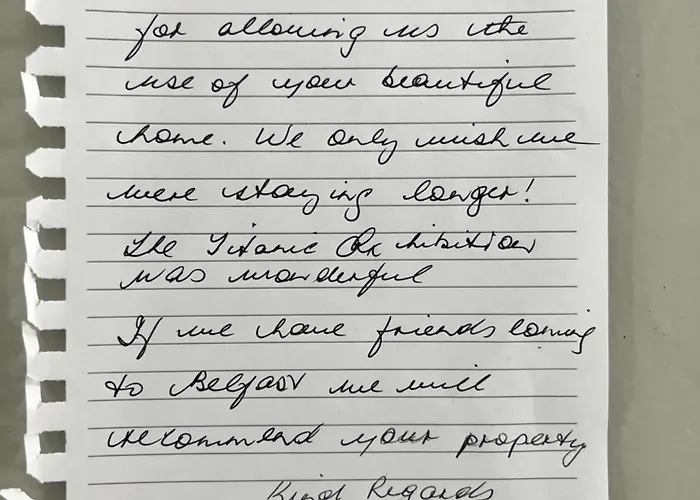 for allowing us the
use of your beautiful
home. We only wish we
were staying longer!
The Titanic Exhibition
was wonderful
If we have friends coming
to Belfast we will
recommend your property
Kind Regards